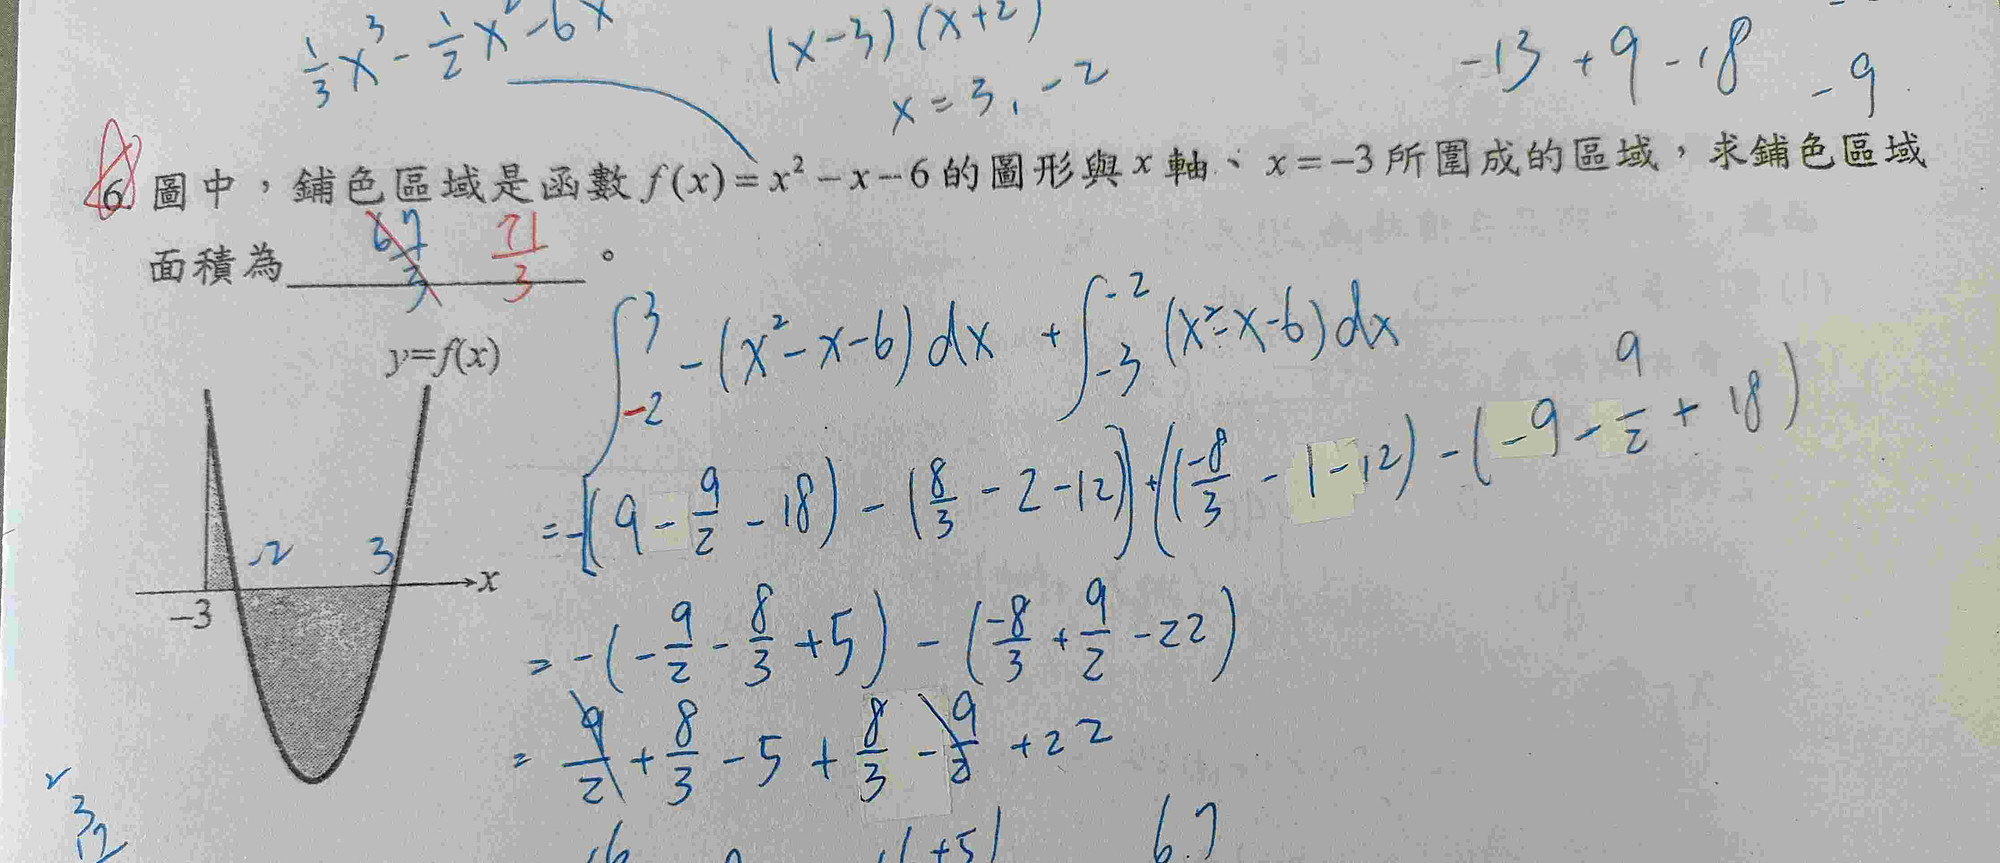 1/3 x³ - 1/2 x² - 6x
(x-3)(x+2)
x = 3, -2
-13 + 9 - 18
-9
6. 圖中，鋪色區域是函數 f(x) = x² - x - 6 的圖形與 x 軸、x = -3 所圍成的區域，求鋪色區域
面積為 67/3 71/3 。
∫_{-2}^{3} -(x² - x - 6) dx + ∫_{-3}^{-2} (x² - x - 6) dx
y=f(x)
= -[(9 - 9/2 - 18) - (8/3 - 2 - 12)] + ((-8/3 - (-12) - (-9 - 9/2 + 18)
-2 3 x
-3
= -(-9/2 - 8/3 + 5) - (-8/3 + 9/2 - 22)
= 9/2 + 8/3 - 5 + 8/3 - 9/2 + 22